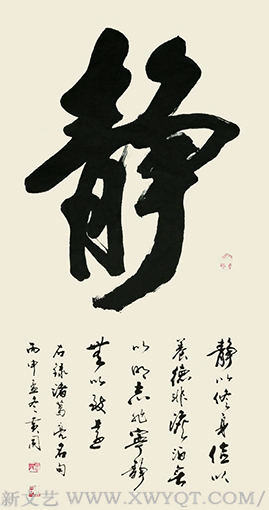 静
静以修身俭以
养德非澹泊无
以明志非宁静
无以致远
右录诸葛亮名句
丙申孟冬
新文艺 WWW.XWYQT.COM/